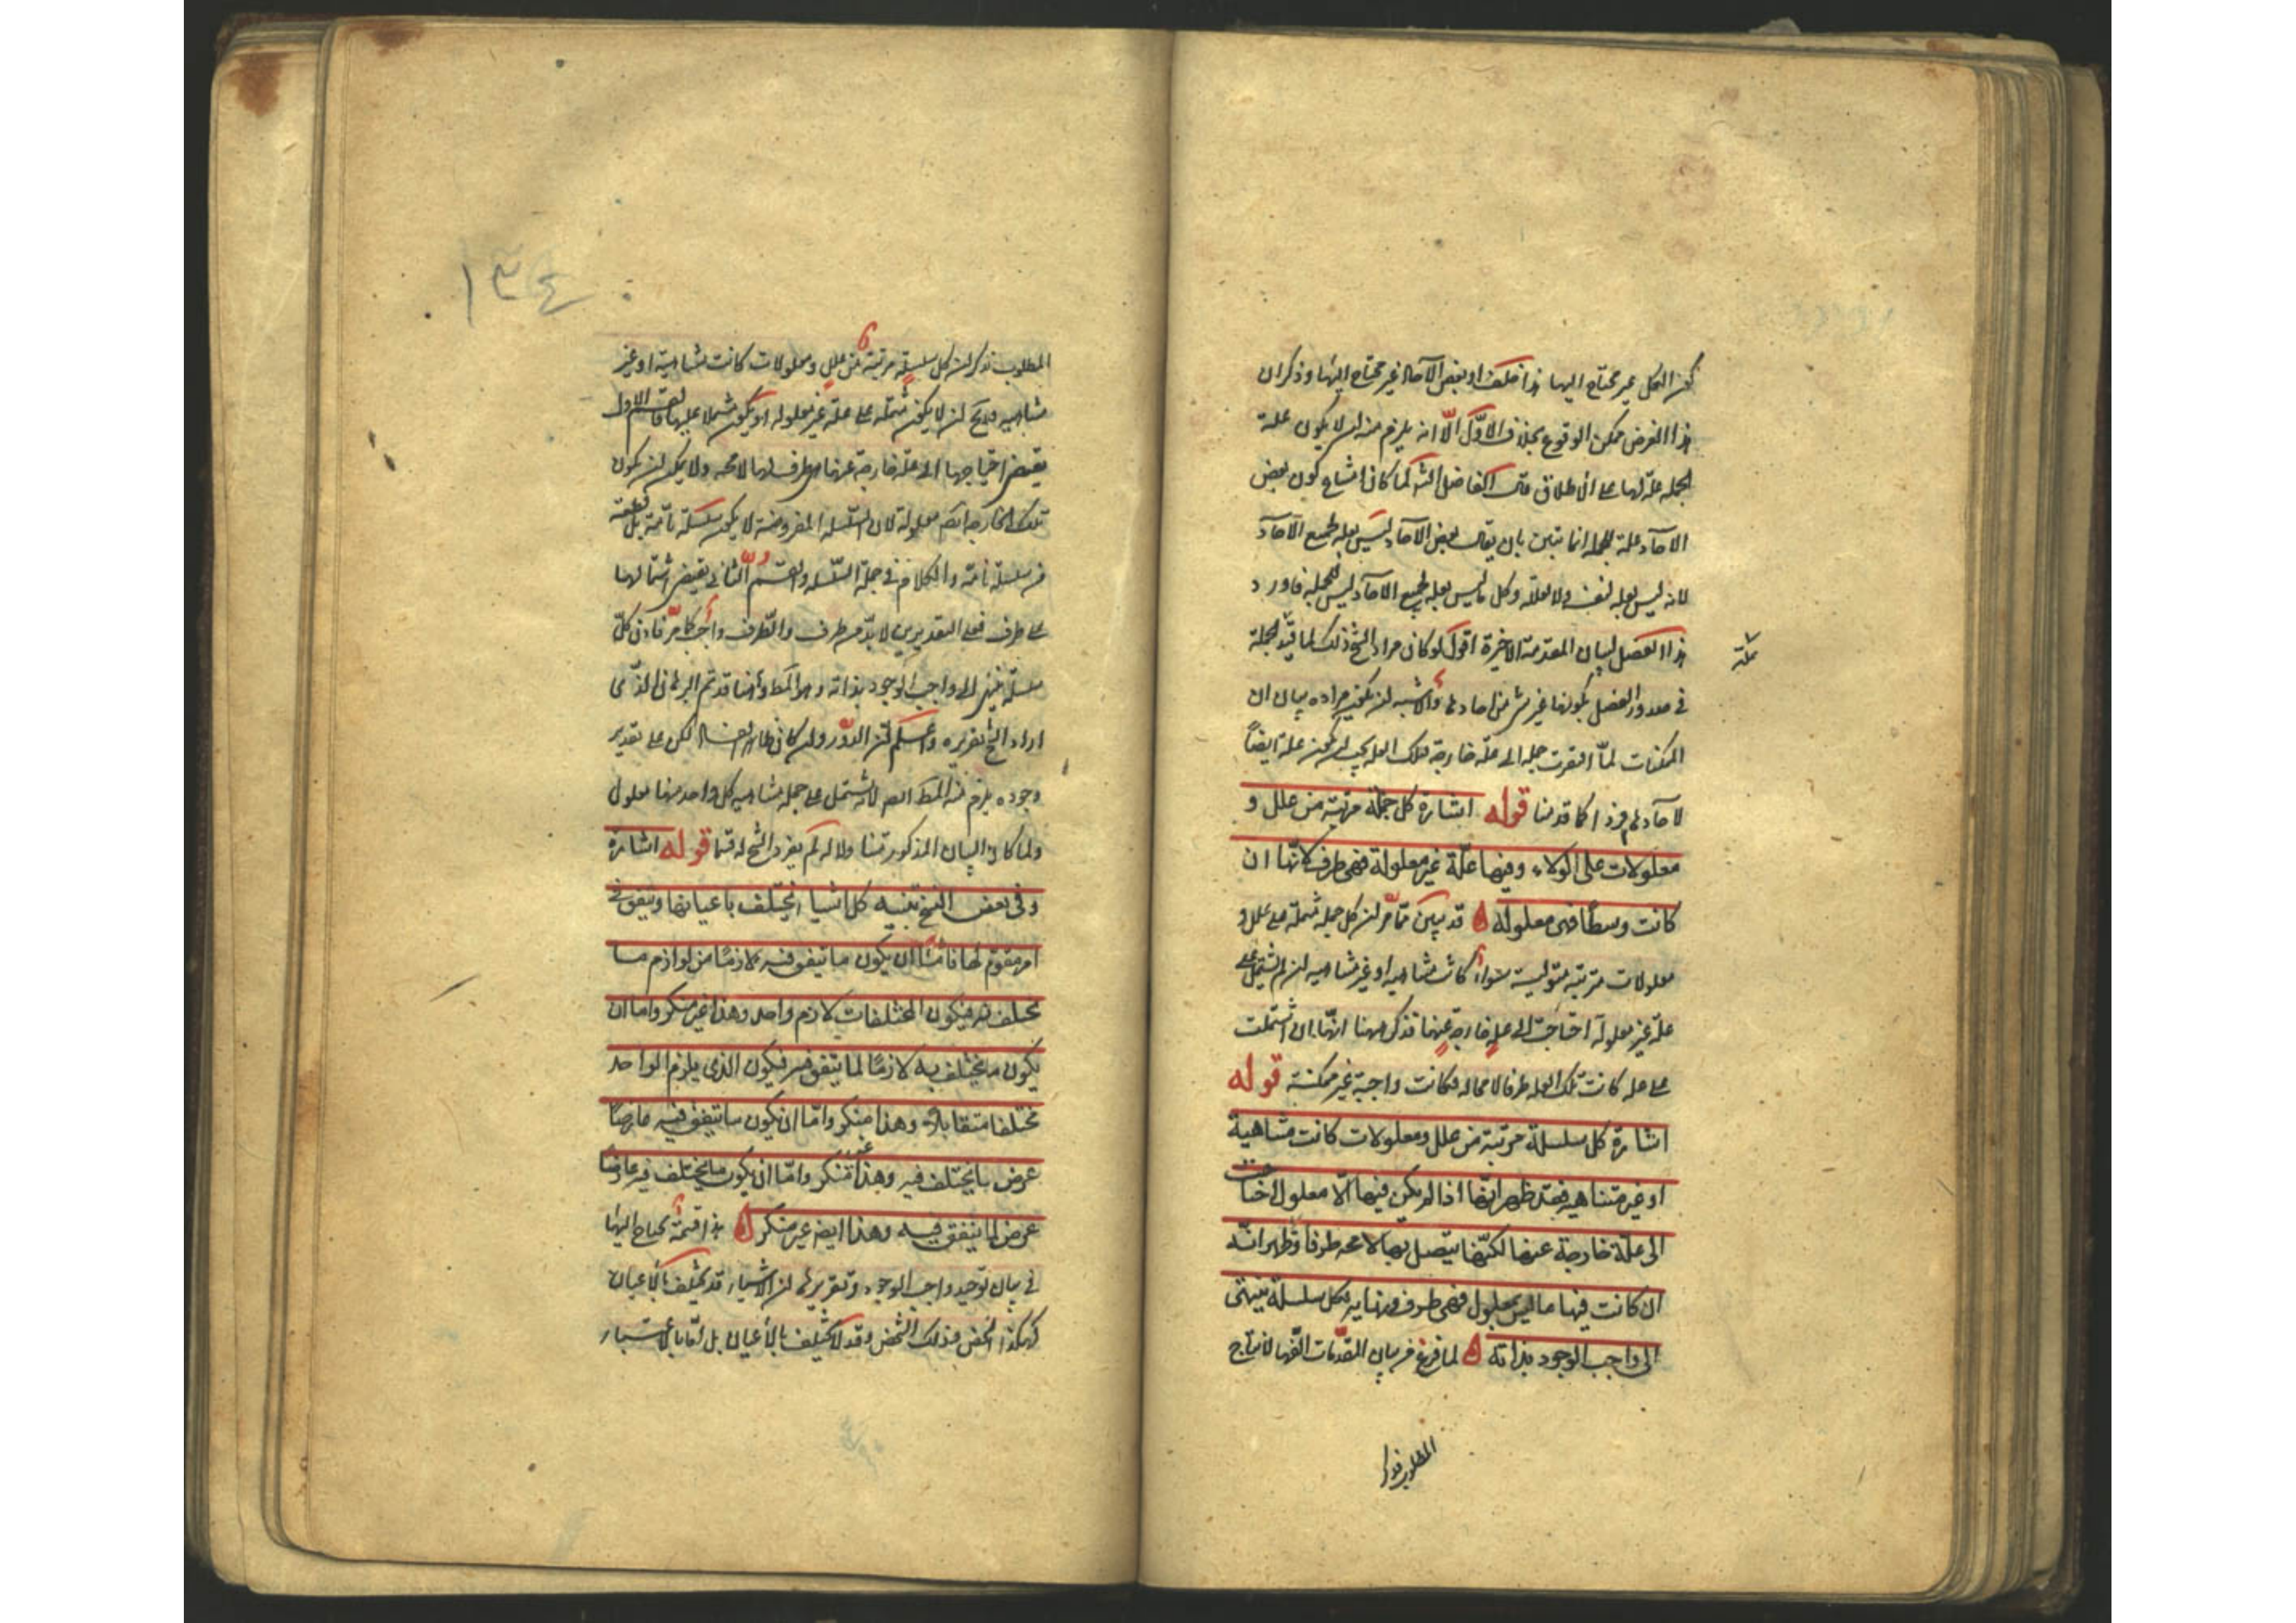 كون الكل غير محتاج اليها هذا خلف او بعض الآحاد غير محتاج اليها وذكر ان
هذا الفرض ممكن الوقوع بخلاف الاوّل الّا انه يلزم منه ان لا يكون علة
الجملة علة لها على الاطلاق قال الفاضل الشارح لما كان امتناع كون بعض
الآحاد علة للجملة انما يتبين بان يقال بعض الآحاد ليس بعلة لجميع الآحاد
لانه ليس بعلة لنفسه ولا لعلله وكل ما ليس بعلة لجميع الآحاد ليس علة للجملة فاورد
علة
هذا الفصل لبيان المقدمة الاخيرة اقول لو كان مراد الشيخ ذلك لما قيّد الجملة
في صدر الفصل بكونها غير شئ من احادها والاشبه ان يكون مراده بيان ان
الممكنات لمّا افتقرت جملة الى علّة خارجة فتلك العلة يجب ان تكون علة ايضاً
لآحادها وهذا كما قدمنا قوله اشارة كل جملة مرتبة من علل و
معلولات على الولاء وفيها علّة غير معلولة فهى طرف لانّها ان
كانت وسطاً فهى معلولة ه قد تبين ممّا مرّ ان كل جملة مشتملة على علل و
معلولات مرتبة متوالية سواء كانت متناهية او غير متناهية ان لم تشتمل على
علّة غير معلولة احتاجت الى علة خارجة عنها فذكر ههنا انّها ان اشتملت
على علة كانت تلك العلة طرفا لا محالة فكانت واجبة غير ممكنة قوله
اشارة كل سلسلة مرتبة من علل ومعلولات كانت متناهية
او غير متناهية فقد ظهر انّها اذا لم يكن فيها الّا معلول احتاجت
الى علّة خارجة عنها لكنّها يتصل بها لا محه طرفا وظهر انّه
ان كانت فيها ما ليس بمعلول فهى طرف ونهاية فكل سلسلة ينتهى
الى واجب الوجود بذاته ه لما فرغ من بيان المقدّمات الّفها لانتاج
المطلوب فذكر
١٣٤
المطلوب فذكر ان كل سلسلة مرتبة من علل ومعلولات كانت متناهية او غير
متناهية فلا يخ ان لا يكون مشتملة على علة غير معلولة او يكون مشتملا عليها فالقسم الاول
يقتضى احتياجها الى علّة خارجة عنها هى طرف لها لا محه ولا يمكن ان يكون
تلك الخارجة ايضا معلولة لان السّلسلة المفروضة لا يكون سلسلة تامّة بل قطعة
من سلسلة تامة والكلام في جملة السّلسلة والقسم الثانى يقتضى اشتمالها
على طرف فعلى التقديرين لا بدّ من طرف والطّرف واجب كما مرّ فاذن كلّ
سلسلة ينتهى الى واجب الوجود بذاته وهو المط وههنا قد تم البرهان الذى
اراد الشيخ تقريره واعلم انّ الدّور وان كان ظاهر الفساد لكن على تقدير
وجوده يلزم منه المط ايضا لانه يشتمل على جملة متناهية كل واحد منها معلول
ولما كان البيان المذكور متناولا له لم يفرد الشيخ له قسما قوله اشارة
وفى بعض النسخ تنبيه كل اشياء تختلف باعيانها وتتفق في
امر مقوّم لها فامّا ان يكون ما تتفق فيه لازمًا من لوازم ما
تختلف به فيكون للمختلفات لازم واحد وهذا غير منكر واما ان
يكون ما يختلف به لازمًا لما يتفق فيه فيكون الذى يلزم الواحد
مختلفا متقابلا وهذا منكر وامّا ان يكون ما تتفق فيه عارضاً
عرض لما يختلف فيه وهذا غير منكر وامّا ان يكون ما يختلف فيه عارضاً
عرض لما يتفق فيه وهذا ايضا غير منكر ه هذا قسمة يحتاج اليها
في بيان توحيد واجب الوجود وتقريرها ان الاشياء قد تختلف بالاعيان
كهذا الشخص وذلك الشخص وقد لا تختلف بالاعيان بل امّا بالاعتبار